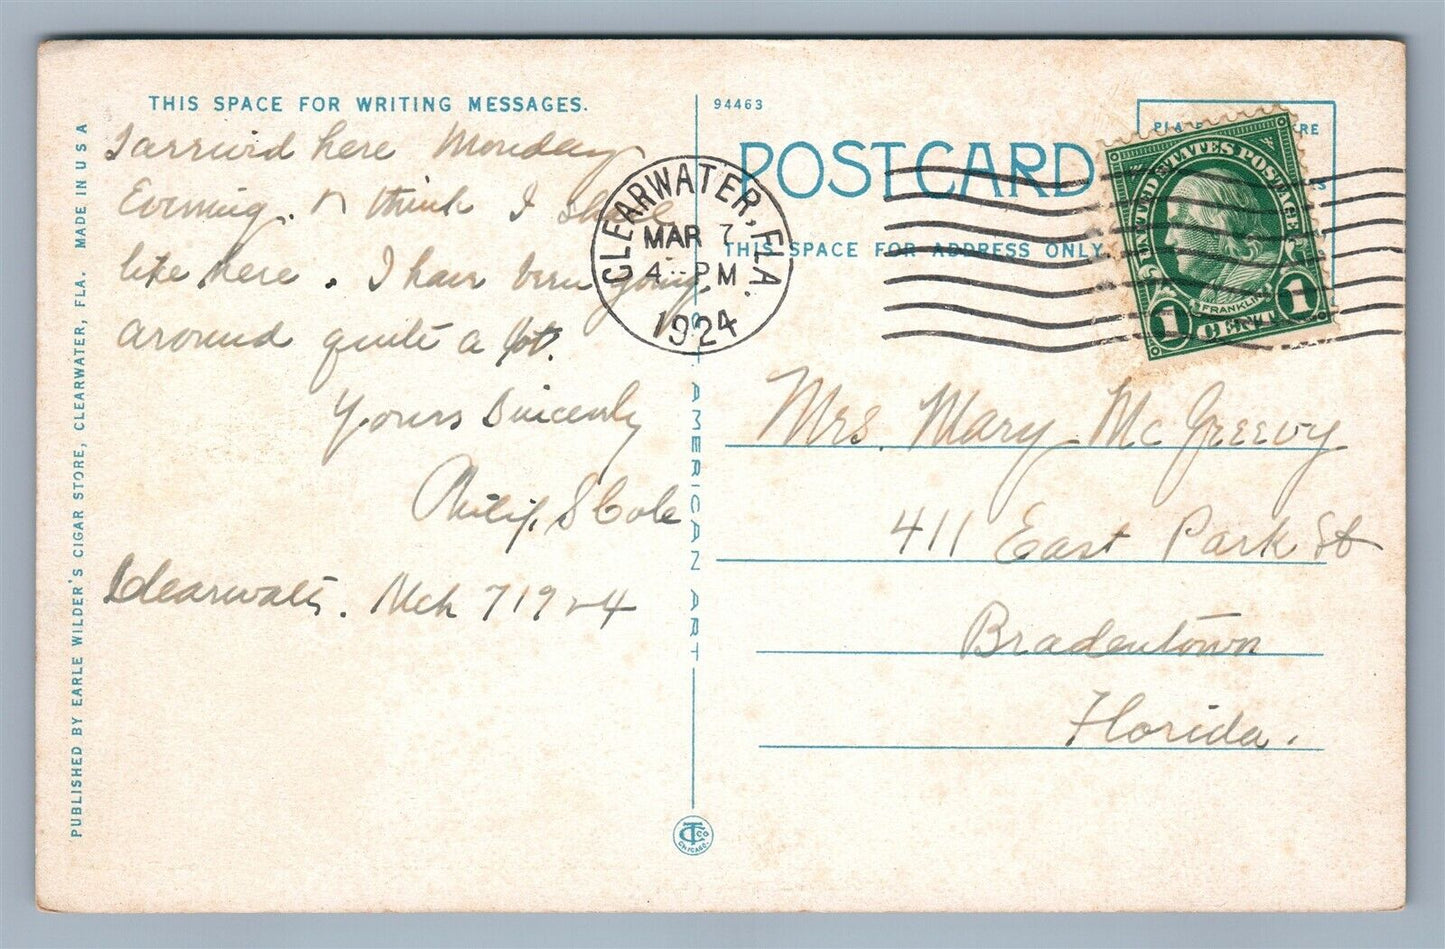 THIS SPACE FOR WRITING MESSAGES.
I arrived here Monday
Evening. think I shall
like here. I have been going
around quite a lot.
Yours Sincerely
Philip. S Cole
Clearwater. Mch 7 1924
PUBLISHED BY EARLE WILDER'S CIGAR STORE, CLEARWATER, FLA. MADE IN U S A
AMERICAN ART
CTCo
CHICAGO.
94463
POSTCARD
THIS SPACE FOR ADDRESS ONLY.
CLEARWATER, FLA.
MAR 7
4 - PM
1924
UNITED STATES POSTAGE
FRANKLIN
1 CENT 1
Mrs. Mary McGreevy
411 East Park St
Bradentown
Florida.